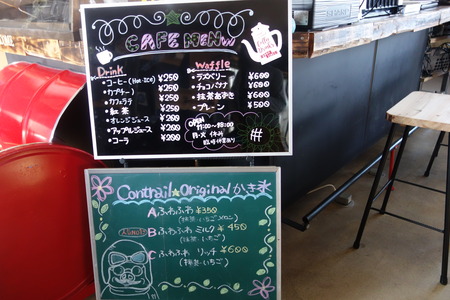 CAFE MENU
Drink
・コーヒー(Hot・Ice) ¥250
・カプチーノ ¥250
・カフェラテ ¥250
・紅茶 ¥250
・オレンジジュース ¥200
・アップルジュース ¥200
・コーラ ¥200
Waffle
・ラズベリー ¥600
・チョコバナナ ¥600
・抹茶あずき ¥600
・プレーン ¥500
OPEN
11:00~18:00
月・火 休み
臨時休業あり
Contrail★Original かき氷
A ふわふわ ¥350
(抹茶・いちご・メロン)
B ふわふわ ミルク ¥450
(抹茶・いちご)
C ふわふわ リッチ ¥600
(抹茶・いちご)